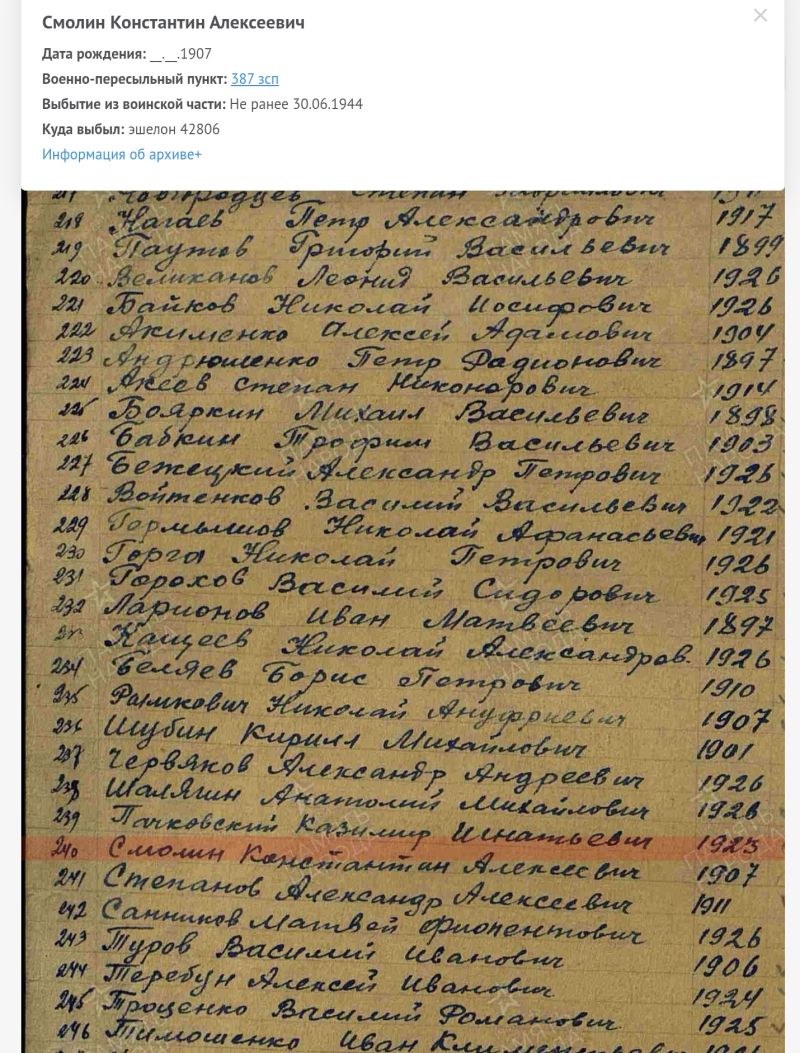 Смолин Константин Алексеевич
Дата рождения: __.__.1907
Военно-пересыльный пункт: 387 зсп
Выбытие из воинской части: Не ранее 30.06.1944
Куда выбыл: эшелон 42806
Информация об архиве+
Новгородцев Степан
218 Нагаев Петр Александрович 1917
219 Паутов Григорий Васильевич 1899
220 Великанов Леонид Васильевич 1926
221 Байков Николай Иосифович 1926
222 Акименко Алексей Адамович 1904
223 Андрюшенко Петр Радионович 1897
224 Акеев Степан Никонорович 1914
225 Бояркин Михаил Васильевич 1898
226 Бабкин Трофим Васильевич 1903
227 Бежецкий Александр Петрович 1926
228 Войтенков Василий Васильевич 1922
229 Николай Афанасьевич 1921
230 Горга Николай Петрович 1926
231 Горохов Василий Сидорович 1925
232 Ларионов Иван Матвеевич 1897
233 Кащеев Николай Александров. 1926
234 Беляев Борис Петрович 1910
235 Рымкович Николай Ануфриевич 1907
236 Шубин Кирилл Михайлович 1901
237 Червяков Александр Андреевич 1926
238 Шалягин Анатолий Михайлович 1926
239 Пачковский Казимир Игнатьевич 1923
240 Смолин Константин Алексеевич 1907
241 Степанов Александр Алексеевич 1911
242 Санников Матвей Фионентович 1926
243 Туров Василий Иванович 1906
244 Теребун Алексей Иванович 1924
245 Троценко Василий Романович 1925
246 Тимошенко Иван